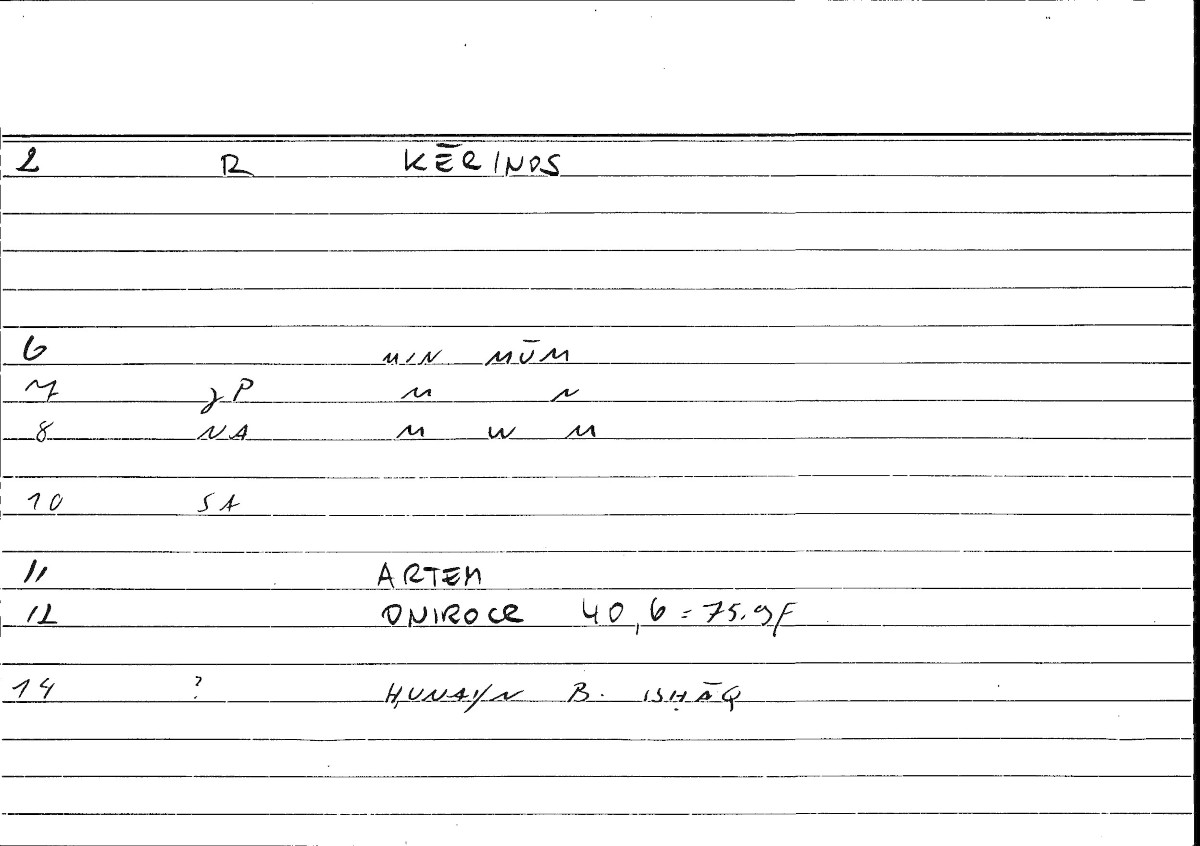 2 R KĒRINOS
6 MIN MŪM
7 gP M N
8 NA M W M
10 SA
11 ARTEM
12 ONIROCR 40,6 = 75.9f
14 ? ḤUNAYN B. ISḤĀQ